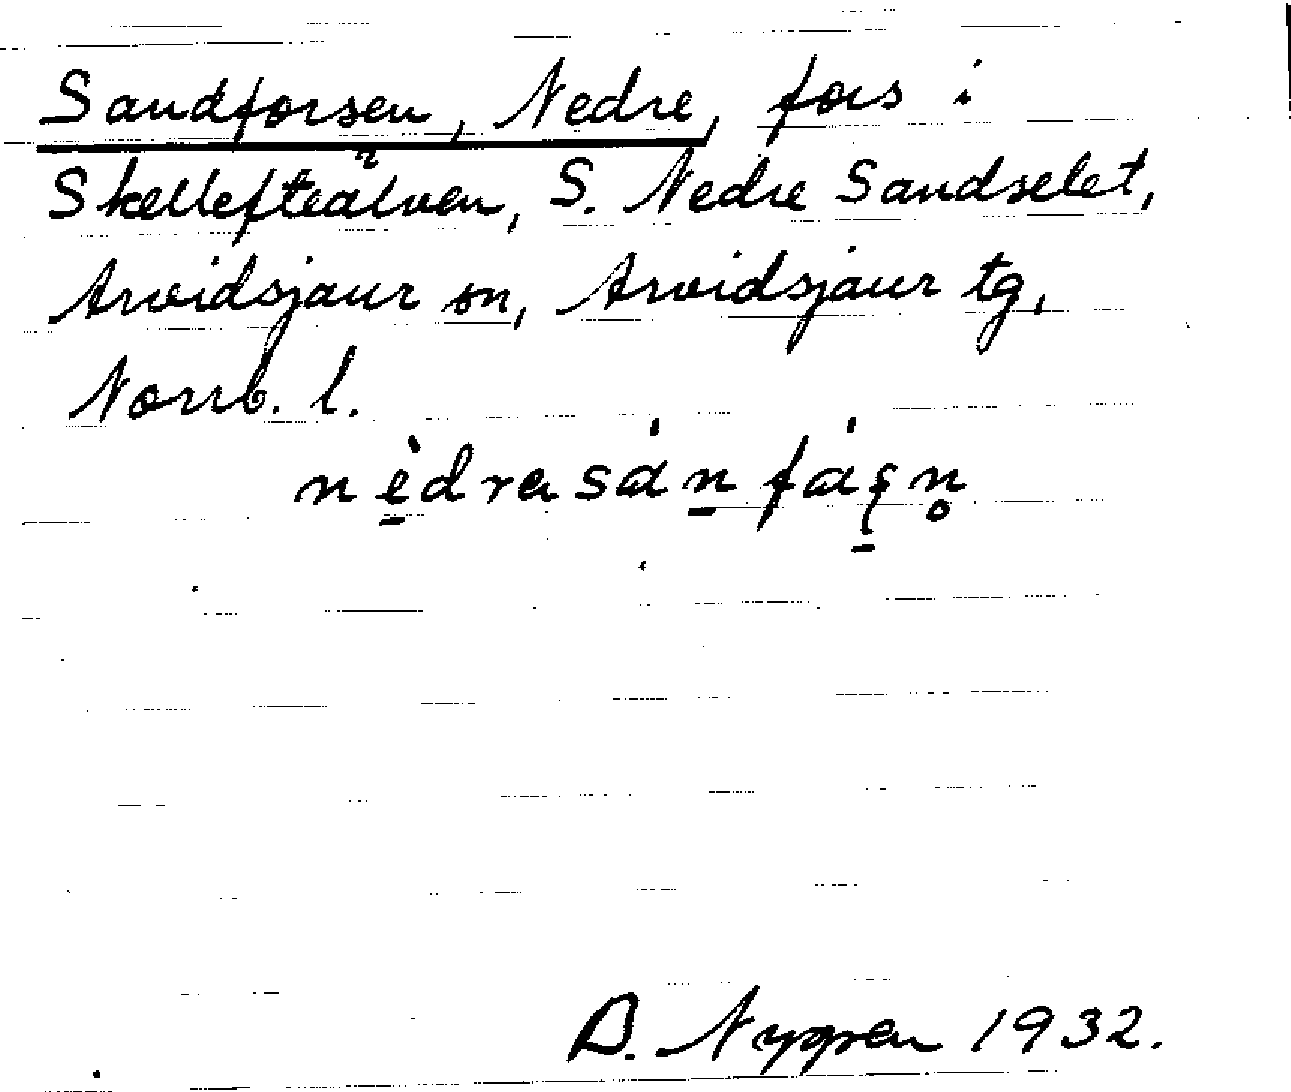 Sandforsen, Nedre, fors i
Skellefteälven, S. Nedre Sandselet,
Arvidsjaur sn, Arvidsjaur tg,
Norrb. l.
Nygren 1932.